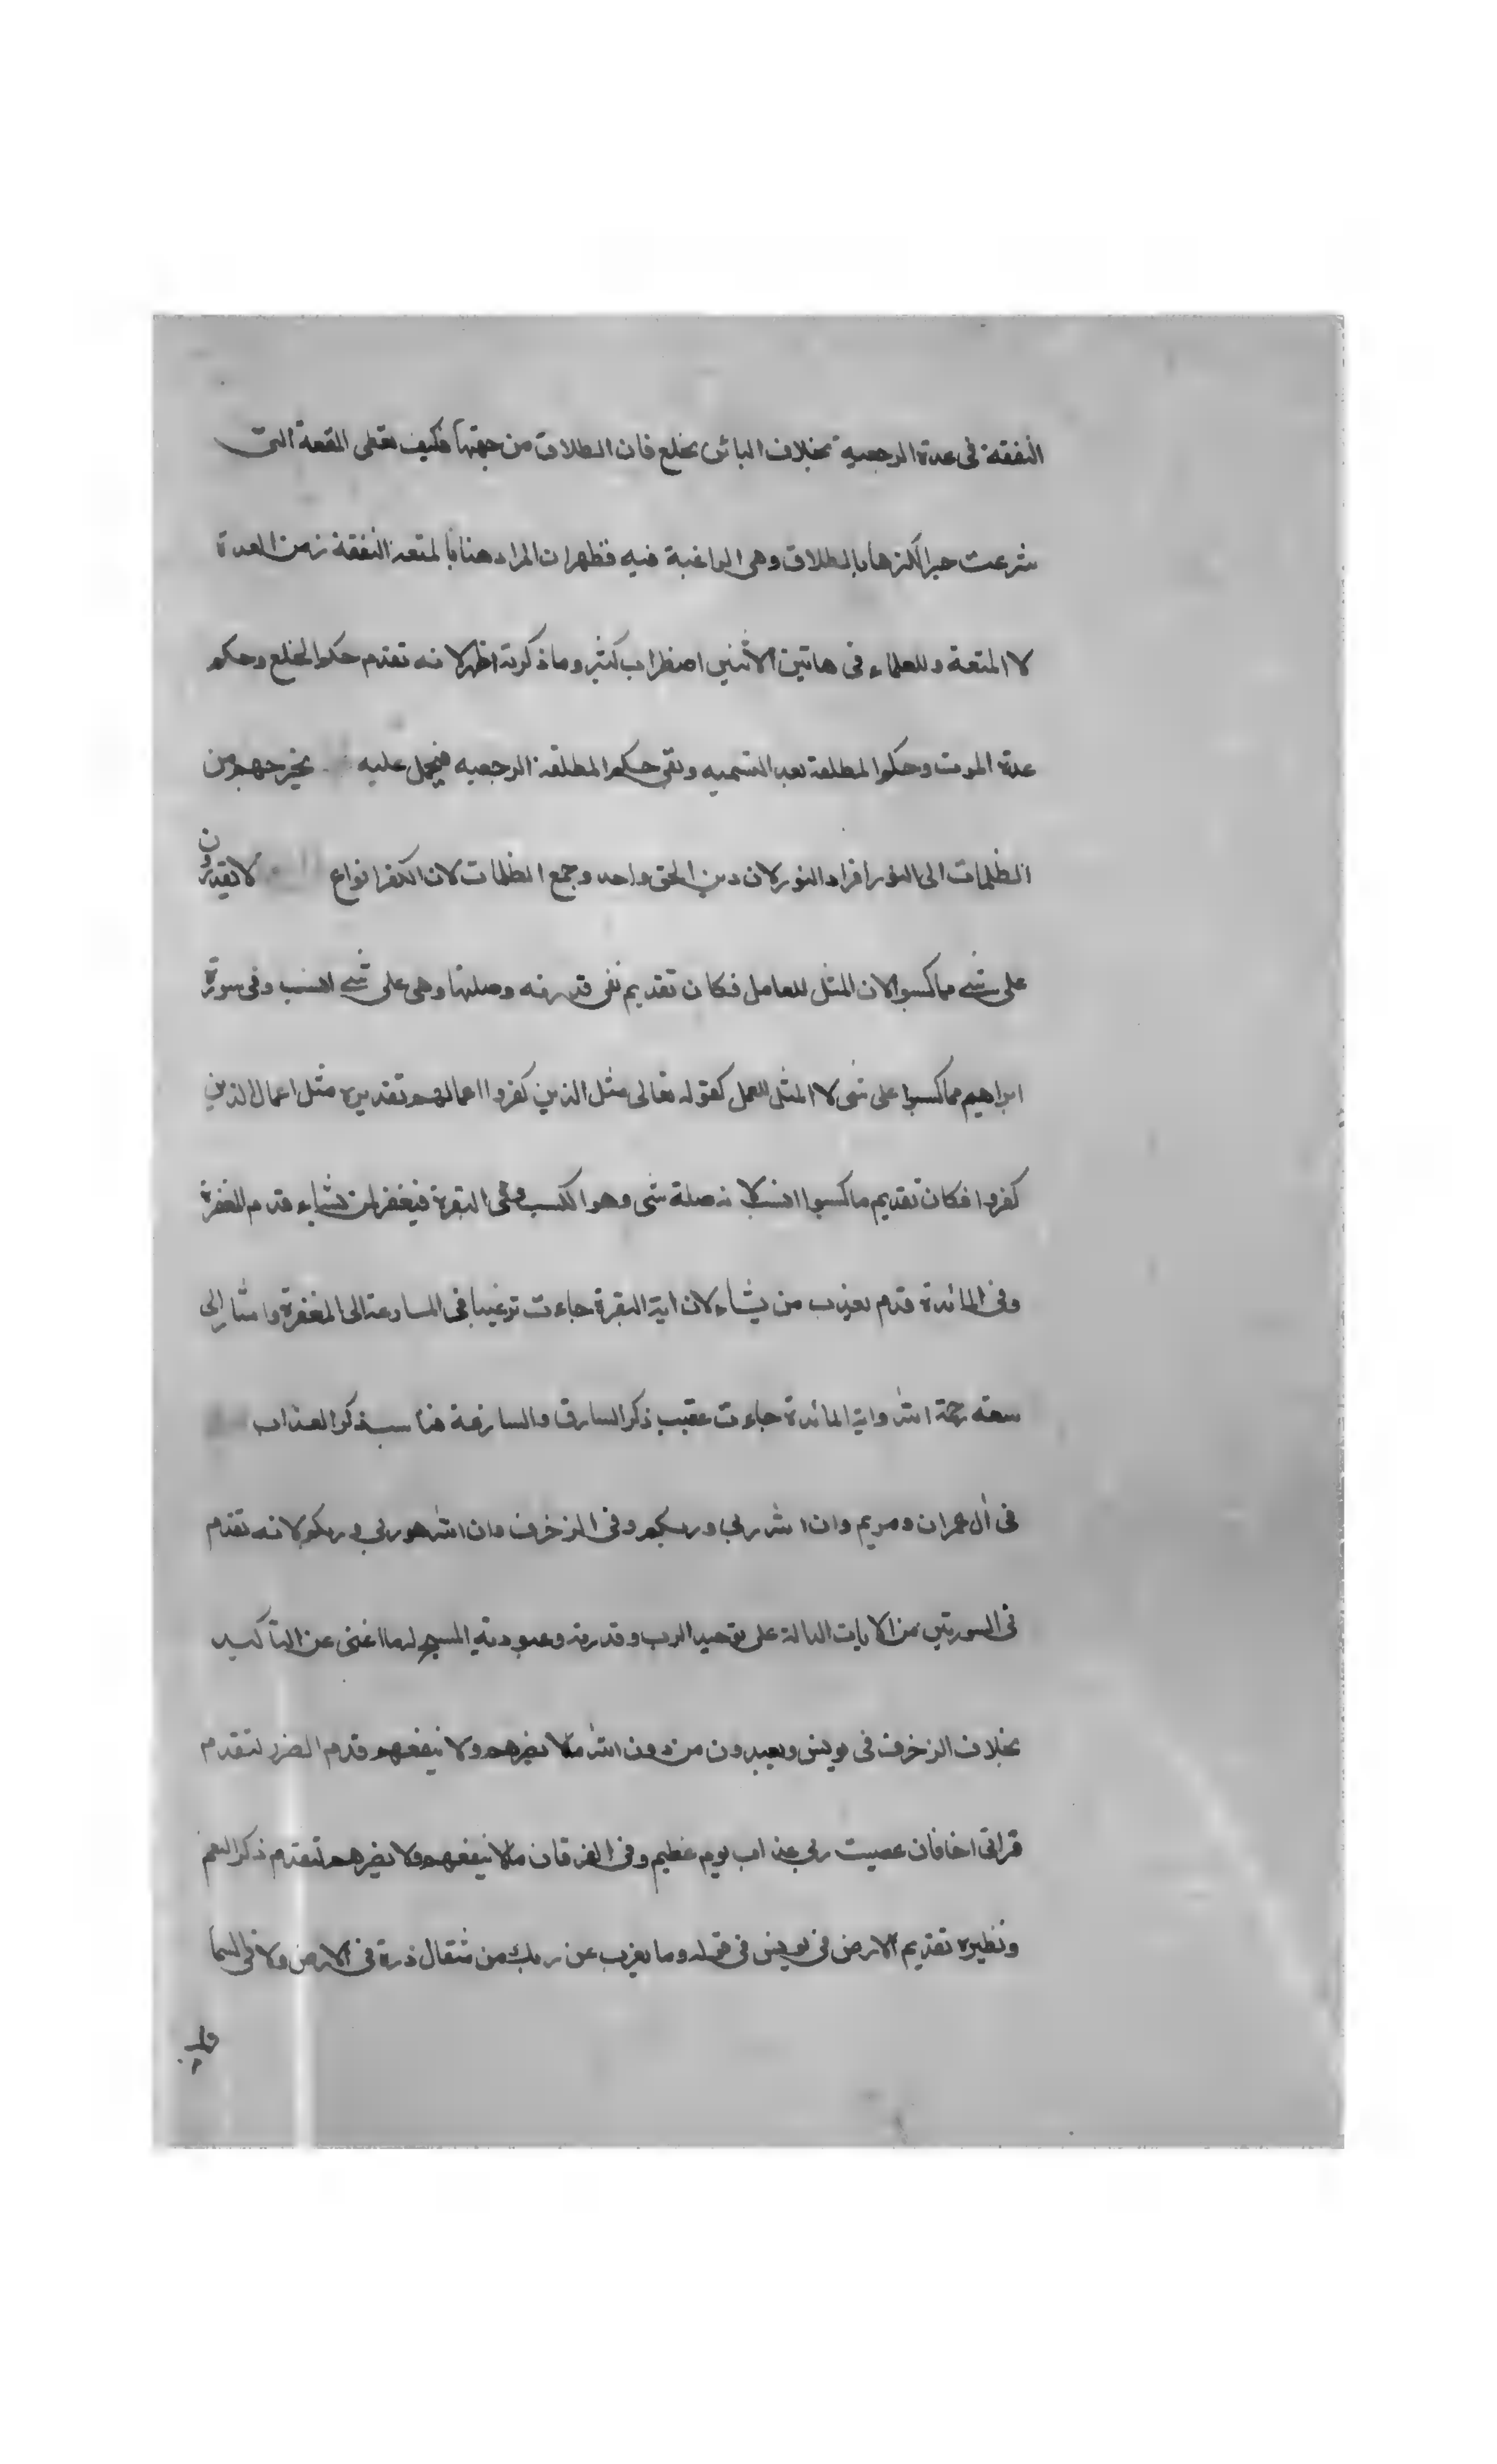 النفقة فى عدة الرجعية بخلاف البائن بخلع فان الطلاق من جهتها فكيف تعطى المتعة التى
شرعت جبرا لكرها بالطلاق وهى الراغبة فيه فظهر ان المراد هنا بالمتعة النفقة زمن العدة
لا المتعة وللعلماء فى هاتين الاثنين اضطراب كثير وما ذكرته اظهر لانه تقدم حكم الخلع وحكم
عدة الموت وحكم المطلقة بعد التسميه وبقى حكم المطلقة الرجعيه فيحمل عليه يخرجهم من
الظلمات الى النور افراد النور لان دين الحق واحد وجمع الظلمات لان الكفر انواع لا يقدرون
على شى مما كسبوا لان المثل للعامل فكان تقديم نفى قدرته وصلتها وهى على شى انسب وفى سورة
ابراهيم مما كسبوا على شى لا المثل للعمل كقوله تعالى مثل الذين كفروا اعمالهم تقديره مثل اعمال الذين
كفروا فكان تقديم ما كسبوا انسب لانه صلة شى وهو الكسب وفى البقرة فيغفر لمن يشاء قدم المغفرة
وفى المائدة قدم يعذب من يشاء لان اية البقرة جاءت ترغيبا فى المسارعة الى المغفرة واشار الى
سعة رحمة الله واية المائدة جاءت عقيب ذكر السارق والسارقة فناسب ذكر العذاب
فى أل عمران ومريم وان الله ربى وربكم وفى الزخرف وان الله هو ربى وربكم لانه تقدم
فى السورتين من الايات الدالة على توحيد الرب وقدرته وعبودية المسيح له ما اغنى عن التأكيد
بخلاف الزخرف فى يونس ويعبدون من دون الله ما لا يضرهم ولا ينفعهم قدم الضرر لتقدم
قراتى اخاف ان عصيت ربى عذاب يوم عظيم وفى الفرقان ما لا ينفعهم ولا يضرهم لتقدم ذكر النعم
ونظيره تقديم الارض فى يونس فى قوله وما يعزب عن ربك من مثقال ذرة فى الارض ولا فى السما